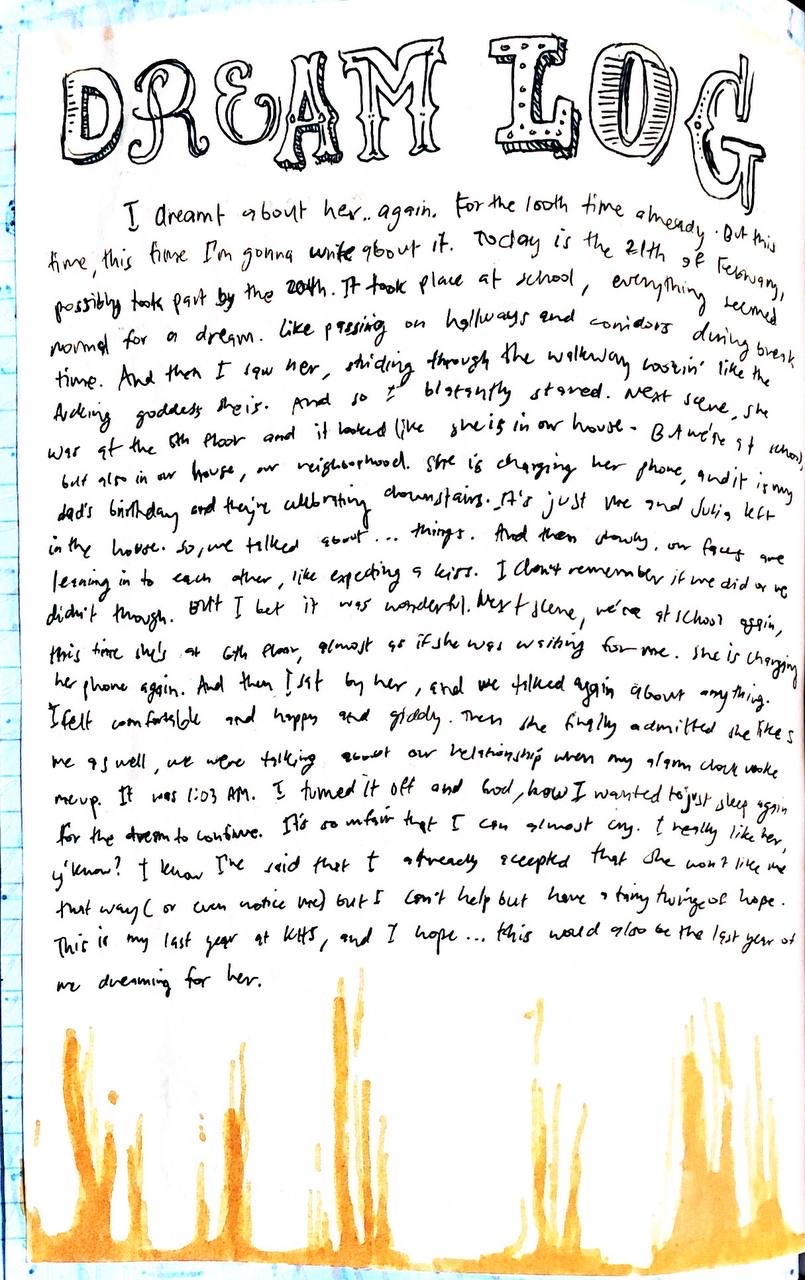 DREAM LOG
I dreamt about her.. again. For the 100th time already. But this
time, this time I'm gonna write about it. Today is the 21th of February,
possibly took part by the 20th. It took place at school, everything seemed
normal for a dream. Like passing on hallways and corridors during break
time. And then I saw her, striding through the walkway lookin' like the
fucking goddess she is. And so I blatantly stared. Next scene, she
was at the 5th floor and it looked like she is in our house - BA we're at school,
but also in our house, our neighborhood. She is charging her phone, and it is my
dad's birthday and they're celebrating downstairs. It's just me and Julia left
in the house. So, we talked about... things. And then slowly, our faces are
leaning in to each other, like expecting a kiss. I don't remember if we did or we
didn't though. But I bet it was wonderful. Next scene, we're at school again,
this time she's at 6th floor, almost as if she was waiting for me. She is charging
her phone again. And then I sat by her, and we talked again about anything.
I felt comfortable and happy and giddy. Then she finally admitted she likes
me as well, we were talking about our relationship when my alarm clock woke
me up. It was 1:03 AM. I turned it off and God, how I wanted to just sleep again
for the dream to continue. It's so unfair that I can almost cry. I really like her,
y'know? I know I've said that I already accepted that she won't like me
that way (or even notice me) but I can't help but have a tiny twinge of hope.
This is my last year at KHS, and I hope... this would also be the last year of
me dreaming for her.